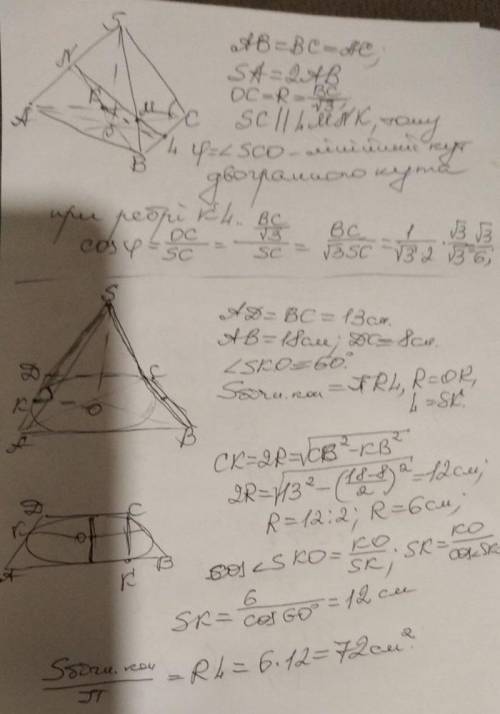 S
N
A
K
M
O
C
B
L
AB=BC=AC;
SA=2AB
OC=R=BC/√3;
SC || LMNK, тому
φ=∠SCO - лінійний кут
двогранного кута
при ребрі KL.
cosφ=OC/SC = (BC/√3)/SC = BC/√3SC = 1/√3·2 · √3/√3 = √3/6;
S
D
C
K
O
A
B
AD=BC=13см.
AB=18см; DC=8см.
∠SKO=60°.
Sбічн. кон = πRL, R=OK,
L=SK.
CK=2R=√CB²-KB²
2R=√13²-((18-8)/2)²=12см;
R=12:2; R=6см;
cos∠SKO=KO/SK; SK=KO/cos∠SK
SK=6/cos60°=12см
D
C
K
O
A
K
B
Sбічн. кон/π = RL=6·12=72см².